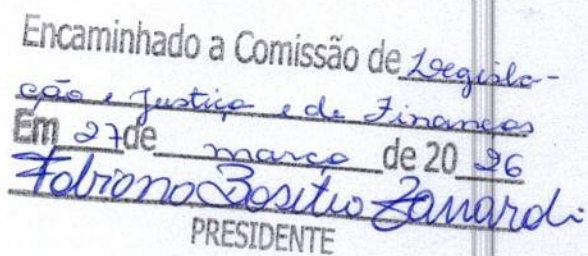 Encaminhado a Comissão de Legisla-
ção e Justiça e de Finanças
Em 27 de março de 20 26
Fabiano Zanardi
PRESIDENTE